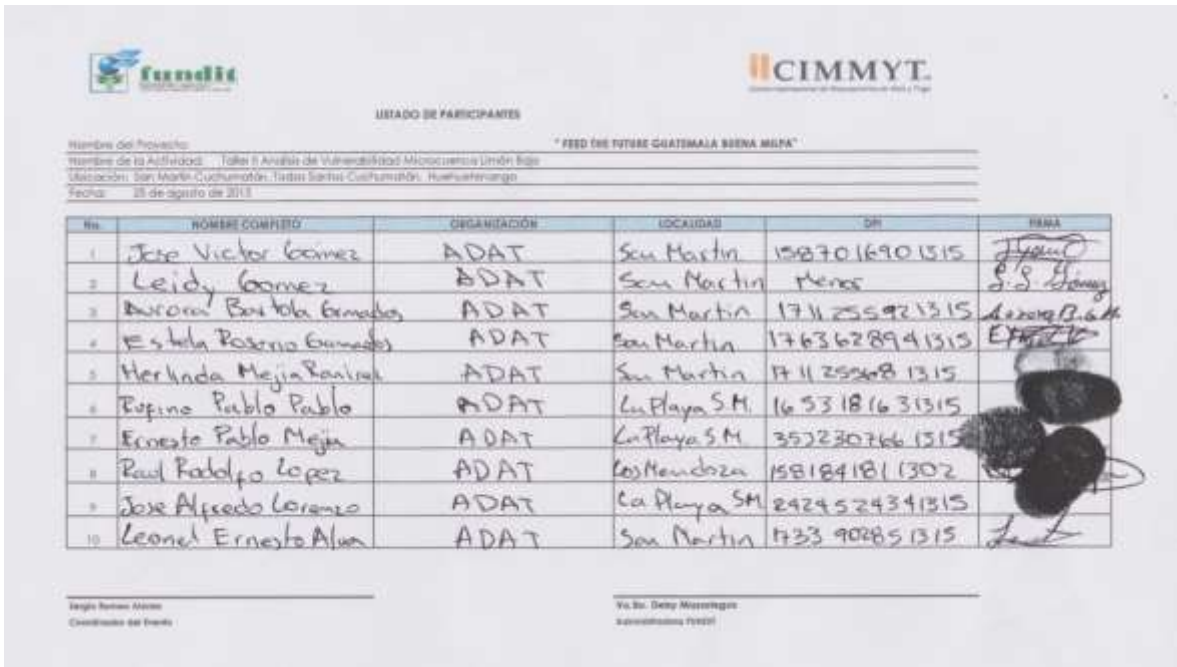 fundit
CIMMYT.
LISTADO DE PARTICIPANTES
Nombre del Proyecto: " FEED THE FUTURE GUATEMALA BUENA MILPA"
Nombre de la Actividad: Taller II Análisis de Vulnerabilidad Microcuenca Limón Bajo
Ubicación: San Martín Cuchumatán, Todos Santos Cuchumatán, Huehuetenango
Fecha: 25 de agosto de
No. NOMBRE COMPLETO ORGANIZACIÓN LOCALIDAD DPI FIRMA
1 Jose Victor Gomez ADAT San Martin 1587016901315
2 Leidy Gomez ADAT San Martin Menor
3 Aurora Bartola ADAT San Martin 1711255921315
4 Estela Rosario ADAT San Martin 1763628941315
5 Herlinda Mejia Ramirez ADAT San Martin 1315
6 Rufino Pablo Pablo ADAT La Playa S.M. 1653181631315
7 Ernesto Pablo Mejia ADAT La Playa S.M. 1315
8 Raul Rodolfo Lopez ADAT Los Mendoza 1581841811302
9 Jose Alfredo Lorenzo ADAT La Playa SM 2424524341315
10 Leonel Ernesto ADAT San Martin 1733902851315
Sergio Romeo Vo. Bo. Deisy
Coordinador del Evento Administradora FUNDIT